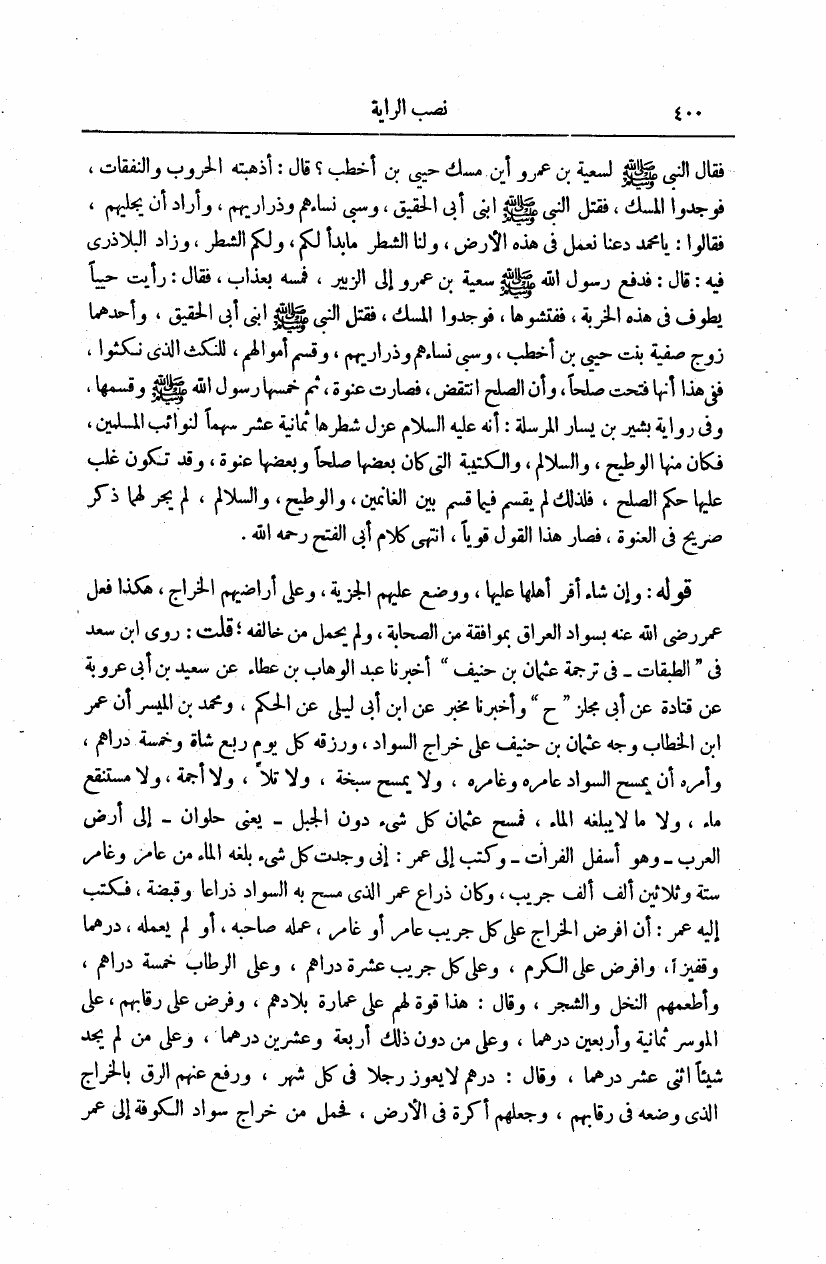 ٤٠٠
نصب الراية
فقال النبى ﷺ لسعية بن عمرو أين مسك حيى بن أخطب ؟ قال : أذهبته الحروب والنفقات ،
فوجدوا المسك ، فقتل النبى ﷺ ابنى أبى الحقيق ، وسبى نساءهم وذراريهم ، وأراد أن يجليهم ،
فقالوا : يامحمد دعنا نعمل فى هذه الأرض ، ولنا الشطر مابدأ لكم ، ولكم الشطر ، وزاد البلاذرى
فيه : قال : فدفع رسول الله ﷺ سعية بن عمرو إلى الزبير ، فمسه بعذاب ، فقال : رأيت حيياً
يطوف فى هذه الخربة ، ففتشوها ، فوجدوا المسك ، فقتل النبى ﷺ ابنى أبى الحقيق ، وأحدهما
زوج صفية بنت حيى بن أخطب ، وسبى نساءهم وذراريهم ، وقسم أموالهم ، للنكث الذى نكثوا ،
ففى هذا أنها فتحت صلحاً ، وأن الصلح انتقض ، فصارت عنوة ، ثم خمسها رسول الله ﷺ وقسمها ،
وفى رواية بشير بن يسار المرسلة : أنه عليه السلام عزل شطرها ثمانية عشر سهماً لنوائب المسلمين ،
فكان منها الوطيح ، والسلالم ، والكتيبة التى كان بعضها صلحاً وبعضها عنوة ، وقد تكون غلب
عليها حكم الصلح ، فلذلك لم يقسم فيما قسم بين الغانمين ، والوطيح ، والسلالم ، لم يجر لهما ذكر
صريح فى العنوة ، فصار هذا القول قوياً ، انتهى كلام أبى الفتح رحمه الله .
قوله : وإن شاء أقر أهلها عليها ، ووضع عليهم الجزية ، وعلى أراضيهم الخراج ، هكذا فعل
عمر رضى الله عنه بسواد العراق بموافقة من الصحابة ، ولم يحمل من خالفه ؛ قلت : روى ابن سعد
فى " الطبقات ـ فى ترجمة عثمان بن حنيف " أخبرنا عبد الوهاب بن عطاء عن سعيد بن أبى عروبة
عن قتادة عن أبى مجلز " ح " وأخبرنا مخبر عن ابن أبى ليلى عن الحكم ، ومحمد بن الميسر أن عمر
ابن الخطاب وجه عثمان بن حنيف على خراج السواد ، ورزقه كل يوم ربع شاة وخمسة دراهم ،
وأمره أن يمسح السواد عامره وغامره ، ولا يمسح سبخة ، ولا تلاً ، ولا أجمة ، ولا مستنقع
ماء ، ولا ما لا يبلغه الماء ، فمسح عثمان كل شىء دون الجبل ـ يعنى حلوان ـ إلى أرض
العرب ـ وهو أسفل الفرات ـ وكتب إلى عمر : إنى وجدت كل شىء بلغه الماء من عامر وغامر
ستة وثلاثين ألف ألف جريب ، وكان ذراع عمر الذى مسح به السواد ذراعا وقبضة ، فكتب
إليه عمر : أن افرض الخراج على كل جريب عامر أو غامر ، عمله صاحبه ، أو لم يعمله ، درهما
وقفيزاً ، وافرض على الكرم ، وعلى كل جريب عشرة دراهم ، وعلى الرطاب خمسة دراهم ،
وأطعمهم النخل والشجر ، وقال : هذا قوة لهم على عمارة بلادهم ، وفرض على رقابهم ، على
الموسر ثمانية وأربعين درهما ، وعلى من دون ذلك أربعة وعشرين درهما ، وعلى من لم يجد
شيئاً اثنى عشر درهما ، وقال : درهم لايعوز رجلا فى كل شهر ، ورفع عنهم الرق بالخراج
الذى وضعه فى رقابهم ، وجعلهم أكرة فى الأرض ، فحمل من خراج سواد الكوفة إلى عمر